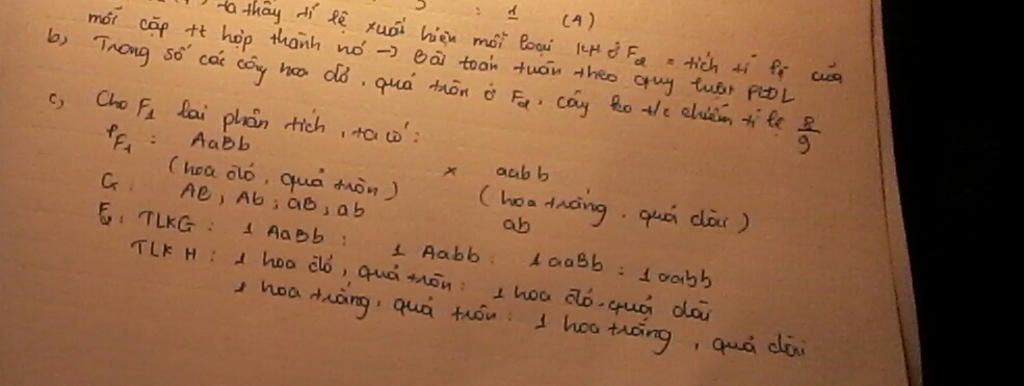 : 1 (4)
, ta thấy tỉ lệ xuất hiện mỗi loại KH ở F2 = tích tỉ lệ của
mỗi cặp tt hợp thành nó → Bài toán tuân theo quy luật PLĐL
b, Trong số các cây hoa đỏ, quả tròn ở F2, cây ko t/c chiếm tỉ lệ 8/9
c, Cho F1 lai phân tích, ta có:
PF1 : AaBb × aabb
(hoa đỏ, quả tròn) (hoa trắng, quả dài)
G: AB, Ab, aB, ab ab
TLKG: 1 AaBb : 1 Aabb : 1 aaBb : 1 aabb
TLKH: 1 hoa đỏ, quả tròn : 1 hoa đỏ, quả dài
1 hoa trắng, quả tròn : 1 hoa trắng, quả dài